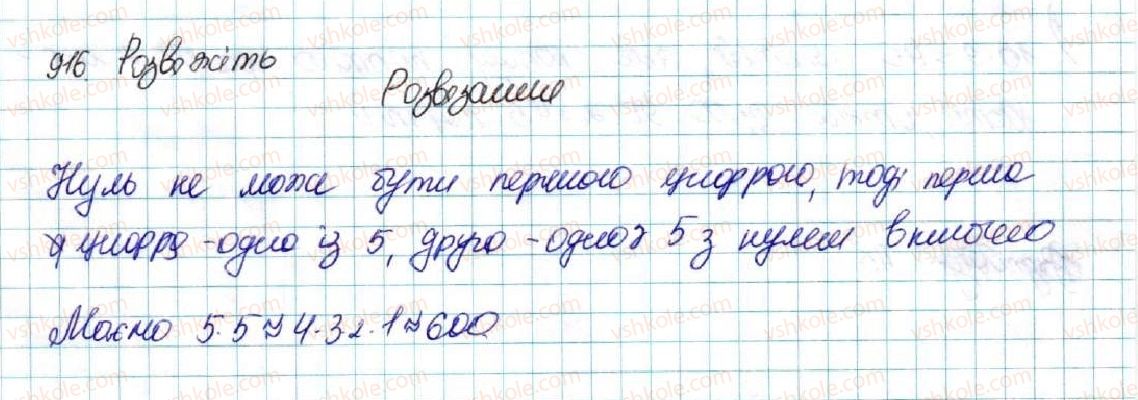 916. Розв'яжіть
Розв'язання
Нуль не може бути першою цифрою, тоді перша
цифра - одна із 5, друга - одна з 5 з нулем включно
Маємо 5·5·4·3·2·1=600